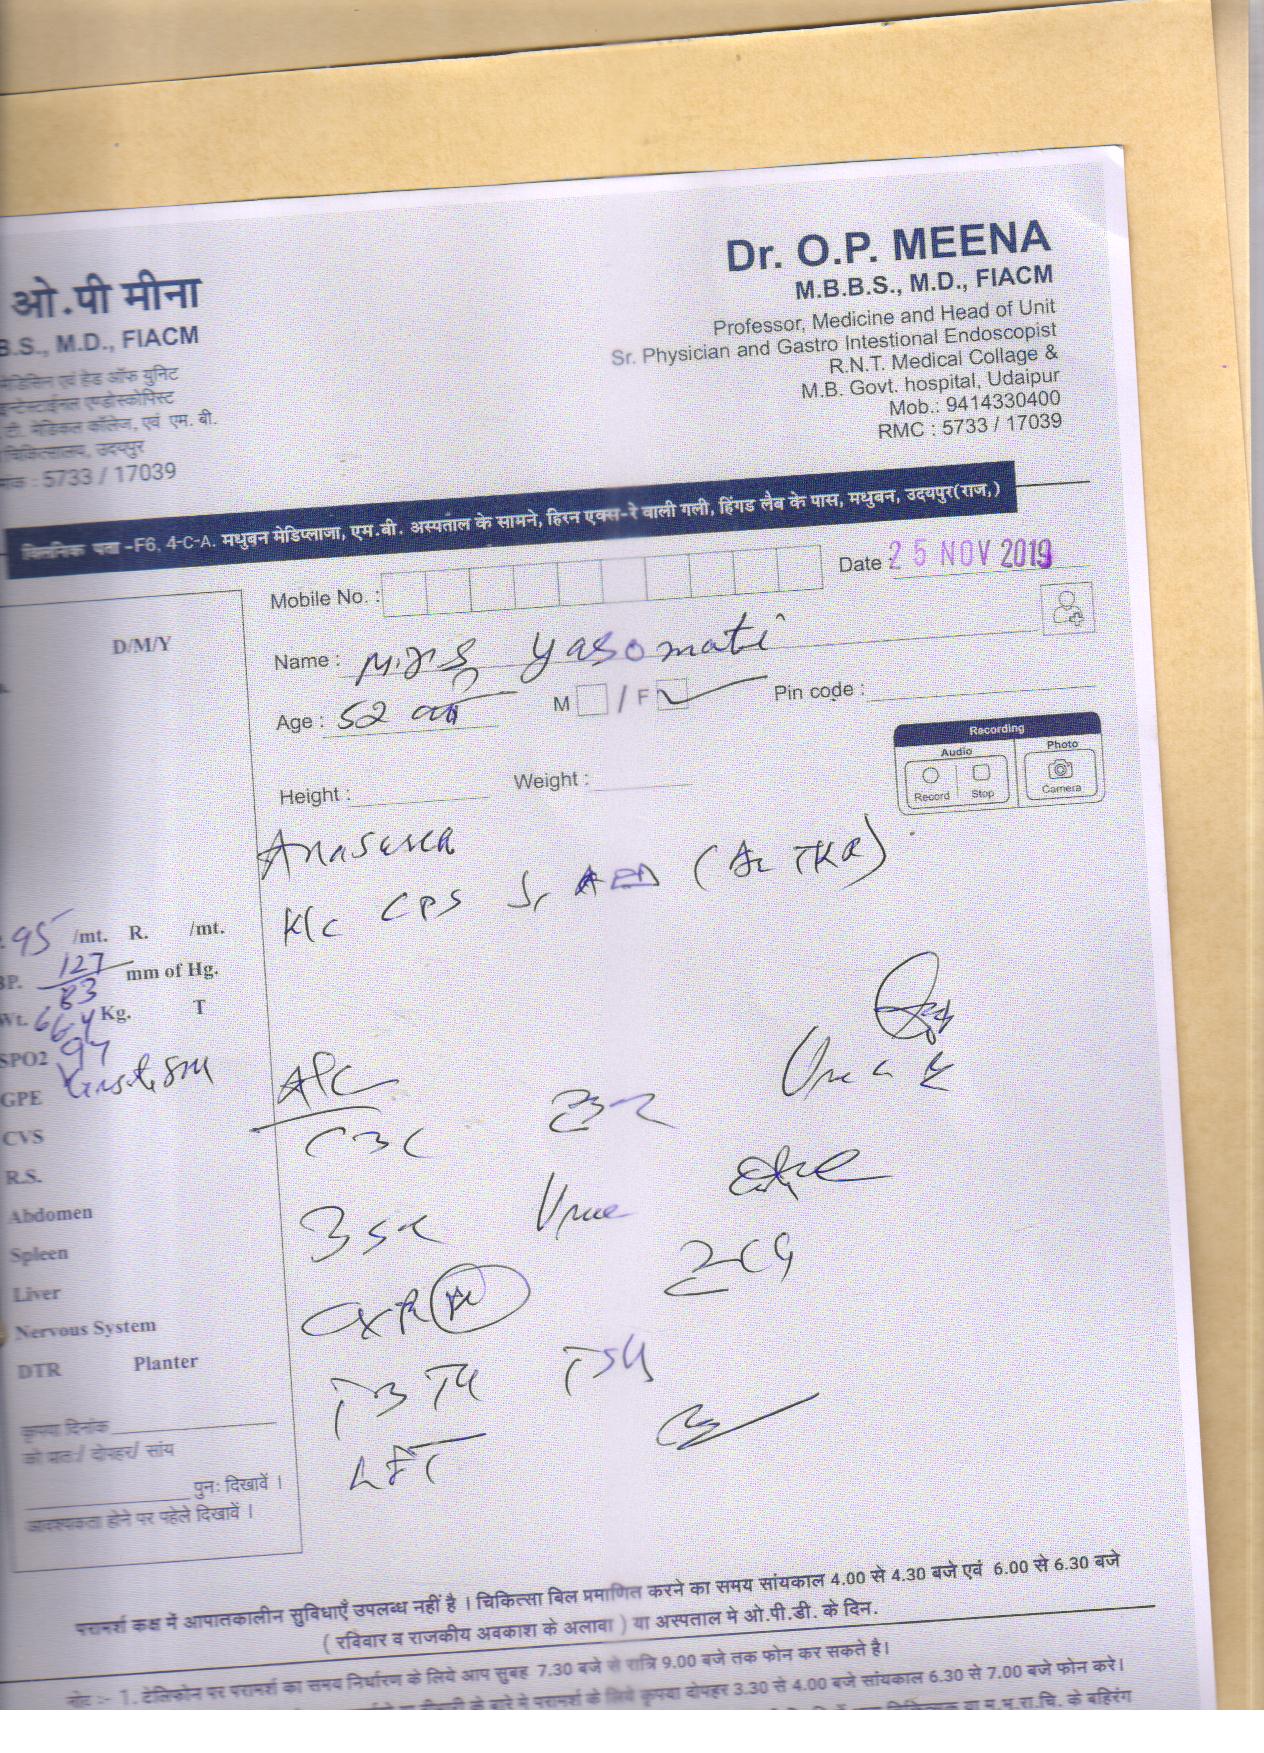 ओ.पी मीना
B.S., M.D., FIACM
मेडिसिन एवं हेड ऑफ युनिट
इन्टेस्टाईनल एण्डोस्कोपिस्ट
टी. मेडिकल कॉलेज, एवं एम. बी.
चिकित्सालय, उदयपुर
: 5733 / 17039
Dr. O.P. MEENA
M.B.B.S., M.D., FIACM
Professor, Medicine and Head of Unit
Sr. Physician and Gastro Intestional Endoscopist
R.N.T. Medical Collage &
M.B. Govt. hospital, Udaipur
Mob.: 9414330400
RMC : 5733 / 17039
क्लिनिक पता -F6, 4-C-A. मधुबन मेडिप्लाजा, एम.बी. अस्पताल के सामने, हिरन एक्स-रे वाली गली, हिंगड लैब के पास, मधुबन, उदयपुर(राज,)
Mobile No. :
Date : 25 NOV 2019
D/M/Y
Name : Mrs yasomati
Age : 52 M / F Pin code :
Recording
Audio Photo
Record Stop Camera
Height : Weight :
Anasarca
K/c CPS (TKR)
95 /mt. R. /mt.
BP. 127/83 mm of Hg.
Wt. 66.4 Kg. T
SPO2 97
GPE
CVS
R.S.
Abdomen
Spleen
Liver
Nervous System
DTR Planter
CBC
Urea
Urine
CXR (PA)
ECG
T3 T4 TSH
LFT
कृपया दिनांक
को प्रात:/ दोपहर/ सांय
पुन: दिखावें ।
आवश्यकता होने पर पहेले दिखावें ।
परामर्श कक्ष में आपातकालीन सुविधाएँ उपलब्ध नहीं है । चिकित्सा बिल प्रमाणित करने का समय सांयकाल 4.00 से 4.30 बजे एवं 6.00 से 6.30 बजे
( रविवार व राजकीय अवकाश के अलावा ) या अस्पताल मे ओ.पी.डी. के दिन.
नोट :- 1. टेलिफोन पर परामर्श का समय निर्धारण के लिये आप सुबह 7.30 बजे से रात्रि 9.00 बजे तक फोन कर सकते है।
के बारे मे परामर्श के लिये कृपया दोपहर 3.30 से 4.00 बजे सांयकाल 6.30 से 7.00 बजे फोन करे।